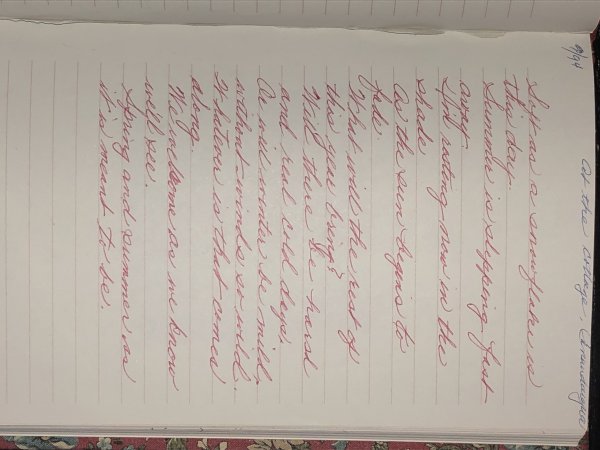 9/94
At the cottage.
Soft as a snowflake is
this day.
Summer is slipping fast
away
now in the
shade
As the sun begins to
fade.
What will the rest of
this year bring?
Will there be harsh
and real cold days
Or will winter be mild
without winds so wild.
Whatever is that comes
along
We welcome as we know
we'll see.
Spring and summer as
it is meant to be.